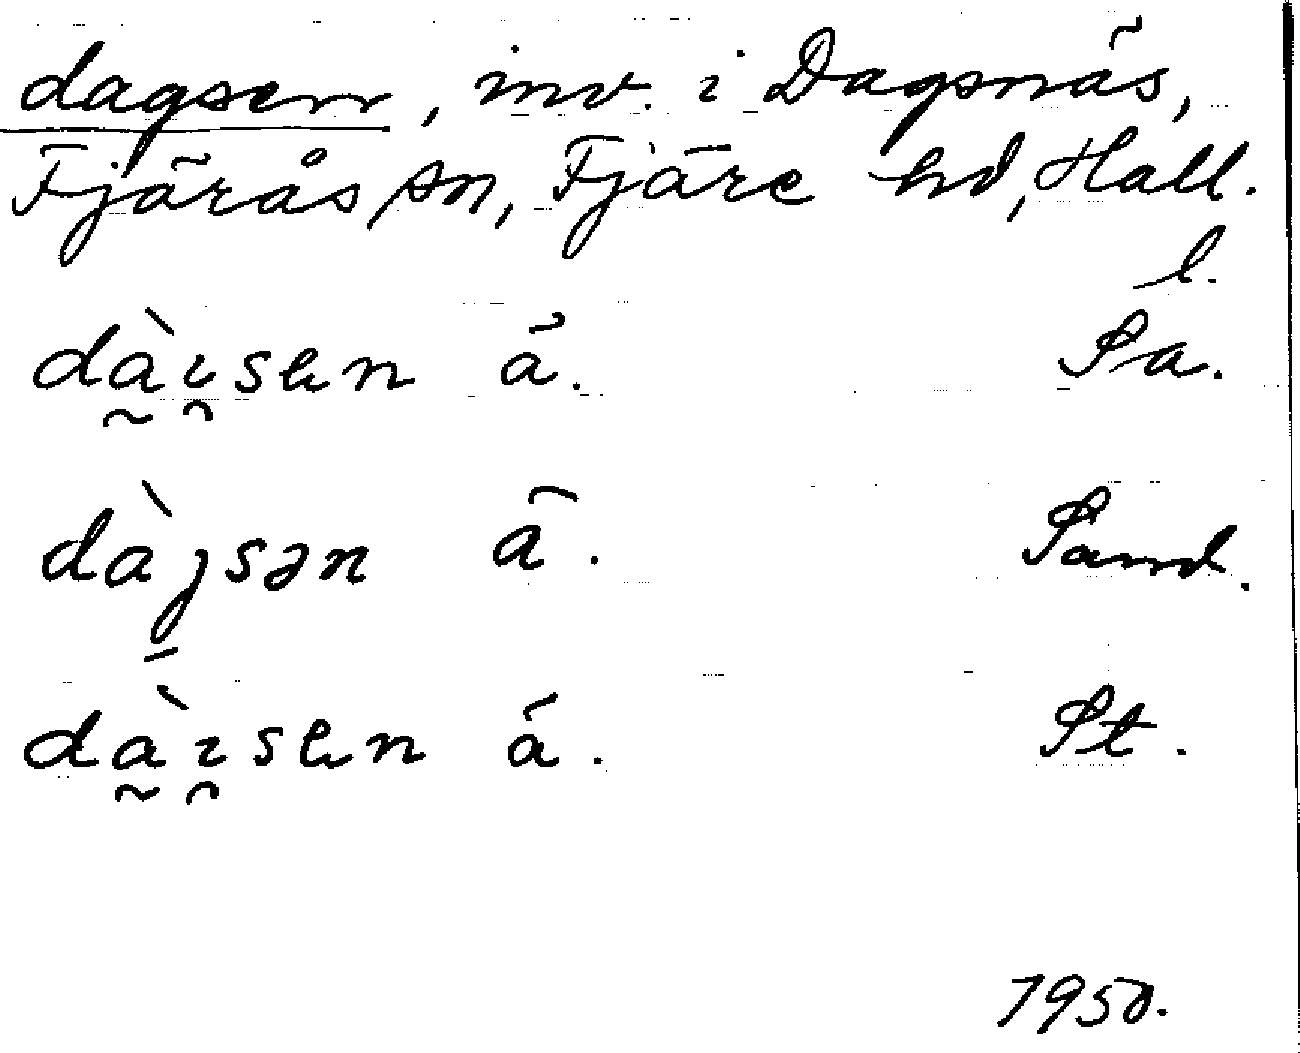 dagsen, inv. i Dagsnäs,
Fjärås sn, Fjäre hd, Hall.
l.
dà̰ı̯sen ā. Sa.
dàȷsən ā. Sand.
dà̰ı̯sen ā. St.
1950.